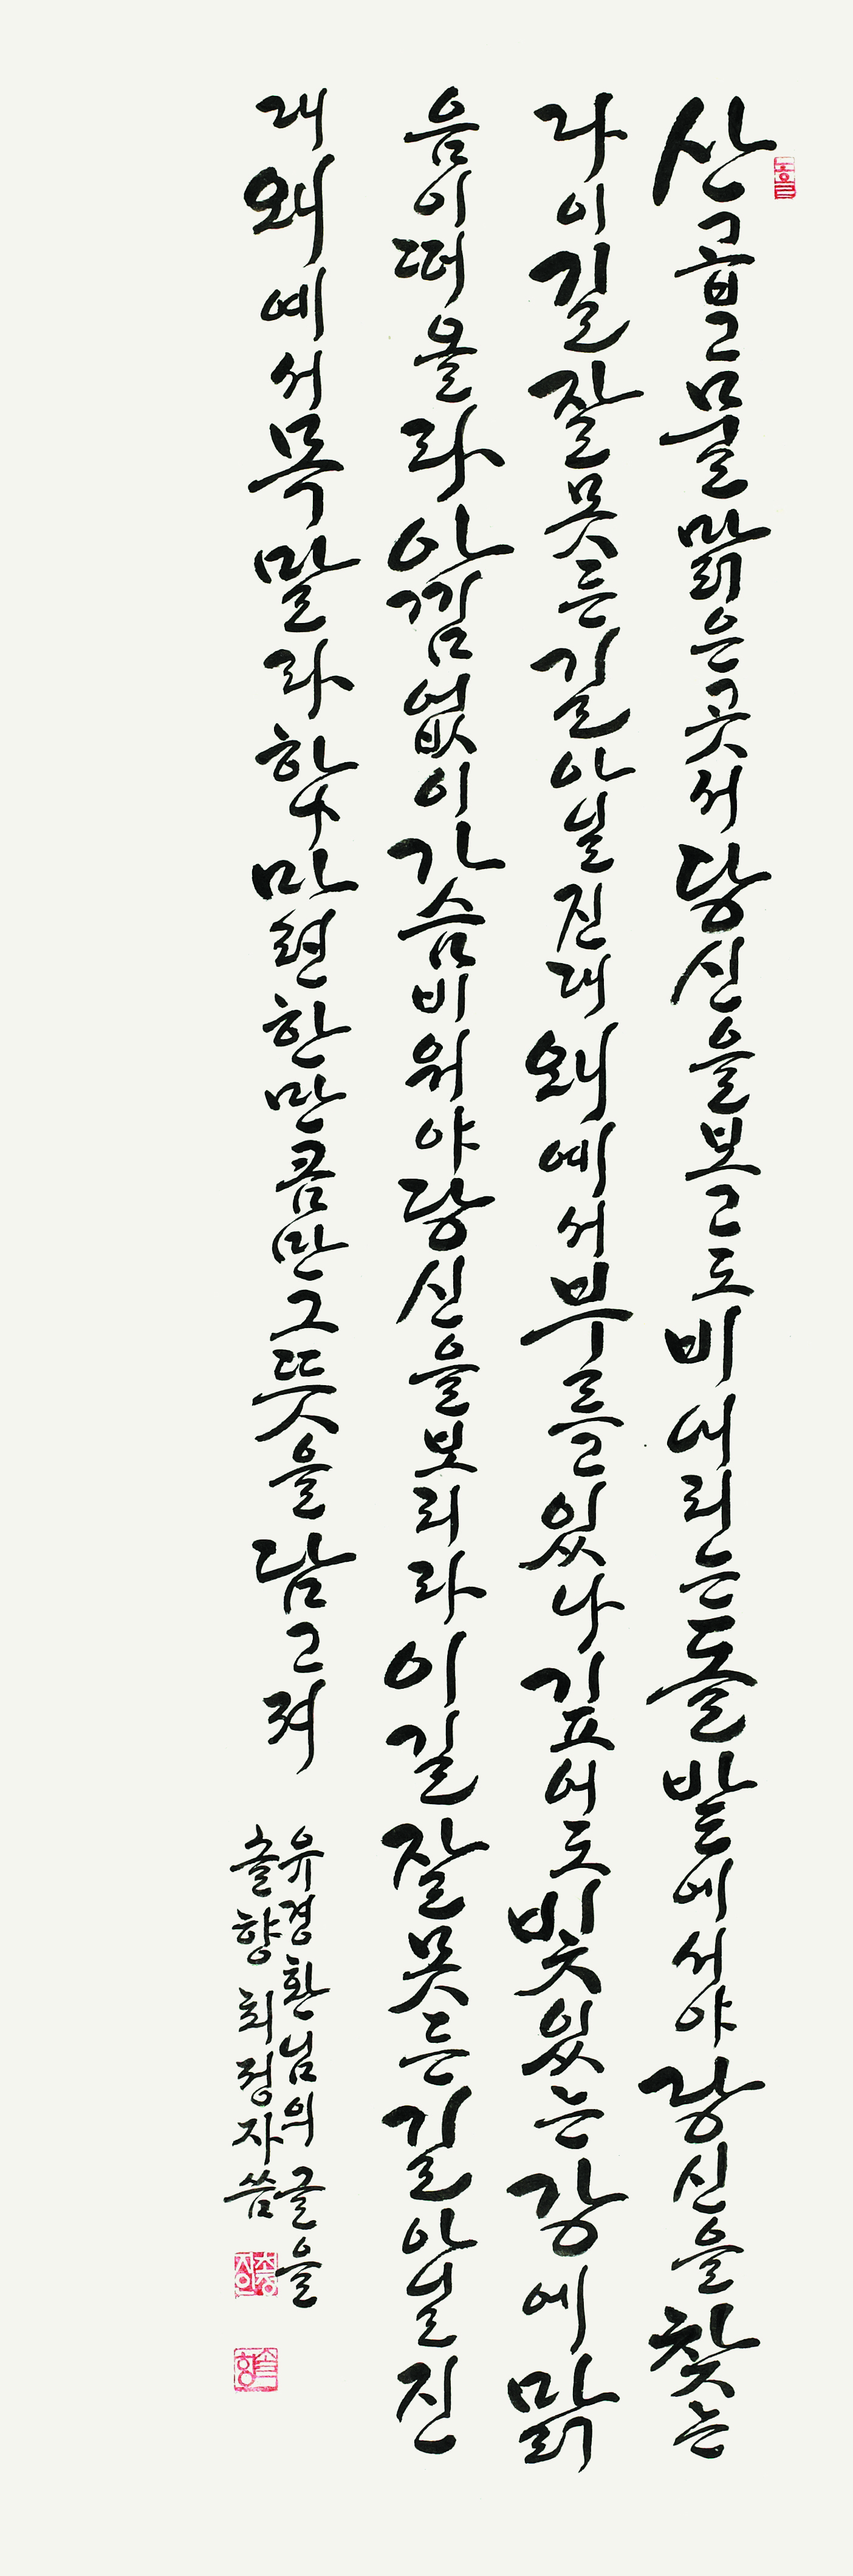 산곱고물맑은곳서당신을보고도비내리는돌밭에서야당신을찾는
다이길잘못든길아닐진대왜예서부르고있나깊어도빛있는강에맑
음이떠올라아낌없이가슴비워야당신을보리라이길잘못든길아닐진
대왜예서목말라하나마련한만큼만그뜻을담고저
유경환님의 글을
솔향 최정자 씀
솔향